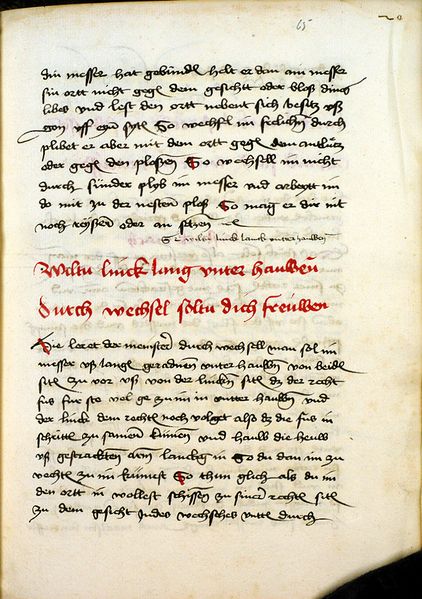 65
din messer hat gebunden helt er dan ain messer
sin ortt nicht gegen dem gesicht oder bloß dines
libes vnd lest den ortt nebent sich besitz vß
gon vff ein sytt So wechsel im frelichen durch
plibet er aber mit dem ortt gegen dem antlütz
oder gegen den ploßen So wechsell im nicht
durch sünder plyb im messer vnd arbeytt im
do mit zu der nesten ploß So mag er dir nit
noch reysen oder an setzen
Wiltu linck lanck vnter hauwen
Wiltu linck lang vnter hauwen
Durch wechsel soltu dich freuwen
Hie leret der meinster durch wechsell man sol im
messer vß langen geradnen vnter hauwen von beiden
siten zu vor vß von der lincken siten dz der recht
fus fur ste vnd ge zu im in vntter hauwen vnd
der linck dem rechten noch volget also dz die fus in
schritten zu samen kumen vnd hauw die heuw
vß gestrackten arm lanckg in So du dan im zu
vechten zu im kumest So thun glich als du im
den ortt in wollest schissen zu siner rechten siten
zu dem gesicht Indes wechsches vnttn durch